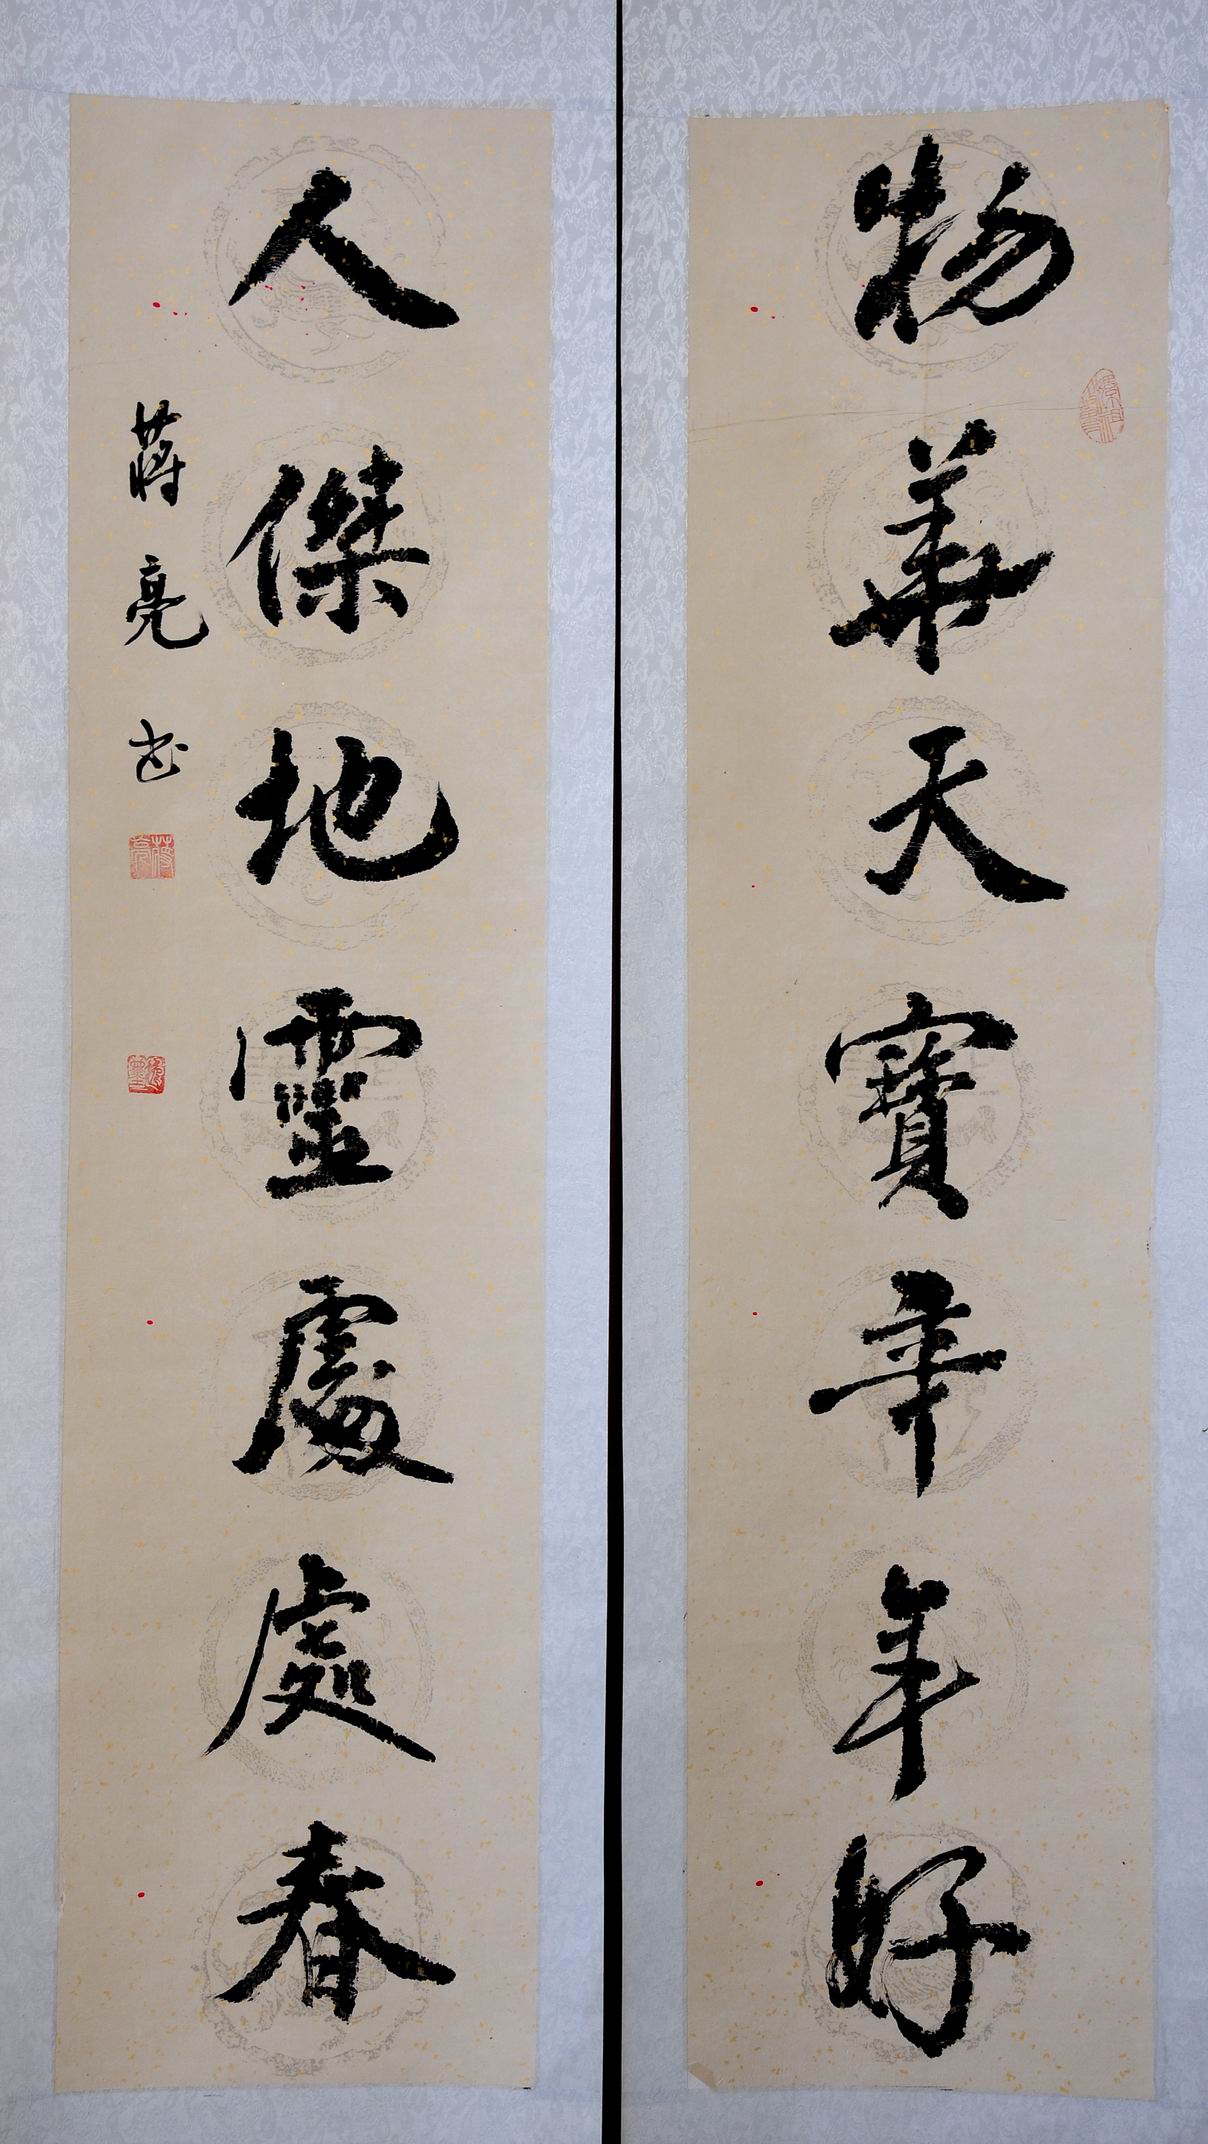 物華天寶年年好
人傑地靈處處春
蔣亮书
蔣亮